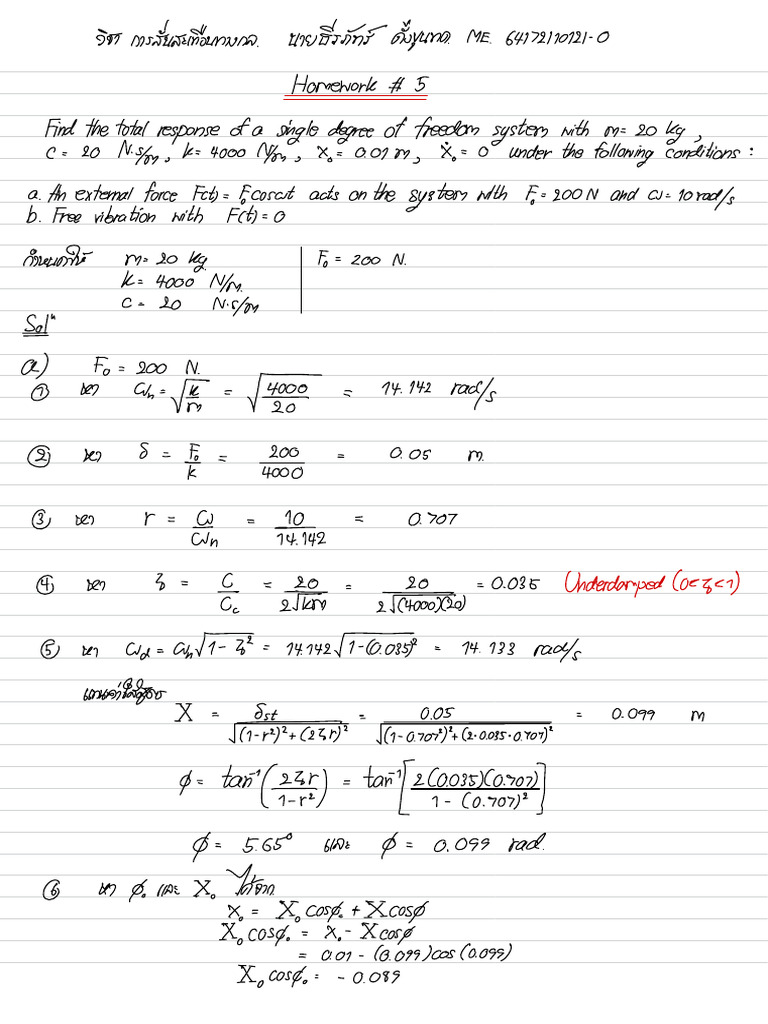 วิชา การสั่นสะเทือนทางกล. นายธีรภัทร์ ME. 64172110121-0
Homework # 5
Find the total response of a single degree of freedom system with m= 20 kg ,
c = 20 N.s/m , k= 4000 N/m , x₀ = 0.01 m , ẋ₀ = 0 under the following conditions :
a. An external force F(t) = F₀cosωt acts on the system with F₀ = 200 N and ω = 10 rad/s
b. Free vibration with F(t) = 0
กำหนดให้ m= 20 kg F₀ = 200 N.
k = 4000 N/m.
c = 20 N.s/m
Solⁿ
a) F₀ = 200 N.
① หา ωₙ = √(k/m) = √(4000/20) = 14.142 rad/s
② หา δ = F₀/k = 200/4000 = 0.05 m.
③ หา r = ω/ωₙ = 10/14.142 = 0.707
④ หา ζ = C/C_c = 20/(2√km) = 20/(2√(4000)(20)) = 0.035 Underdamped (0<ζ<1)
⑤ หา ω_d = ωₙ√(1-ζ²) = 14.142√(1-(0.035)²) = 14.133 rad/s
แทนค่าใส่สูตร
X = δst/√((1-r²)²+(2ζr)²) = 0.05/√((1-0.707²)²+(2·0.035·0.707)²) = 0.099 m
φ = tan⁻¹(2ζr/(1-r²)) = tan⁻¹[2(0.035)(0.707)/(1-(0.707)²)]
φ = 5.65° และ φ = 0.099 rad.
⑥ หา φ₀ และ X₀ ได้จาก
x₀ = X₀cosφ₀ + Xcosφ
X₀cosφ₀ = x₀ - Xcosφ
= 0.01 - (0.099)cos(0.099)
X₀cosφ₀ = - 0.089